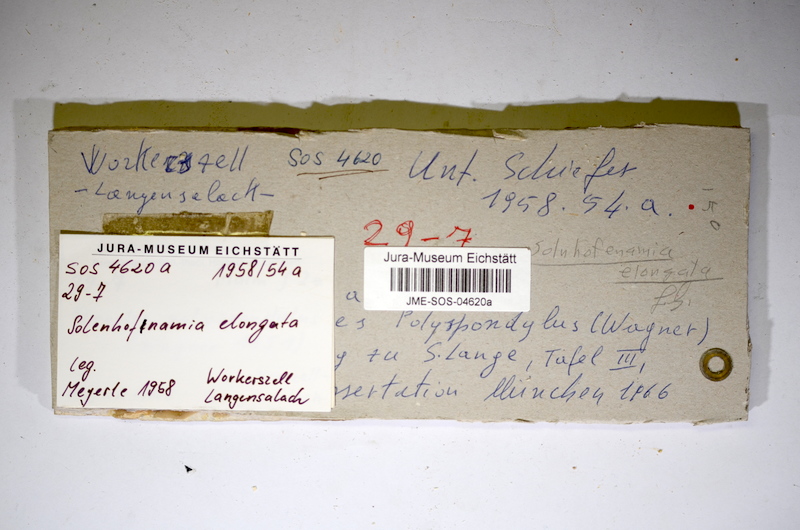 Workerszell
SOS 4620
Unt. Schiefer
-Langensalach-
1958.54.a.
29-7
Solnhofenamia
elongata
JURA-MUSEUM EICHSTÄTT
SOS 4620a 1958/54a
29-7
Solenhofenamia elongata
leg.
Meyerle 1958
Workerszell
Langensalach
Jura-Museum Eichstätt
JME-SOS-04620a
a
es Polyspondylus (Wagner)
g zu S. Lange, Tafel III,
ssertation München 1966